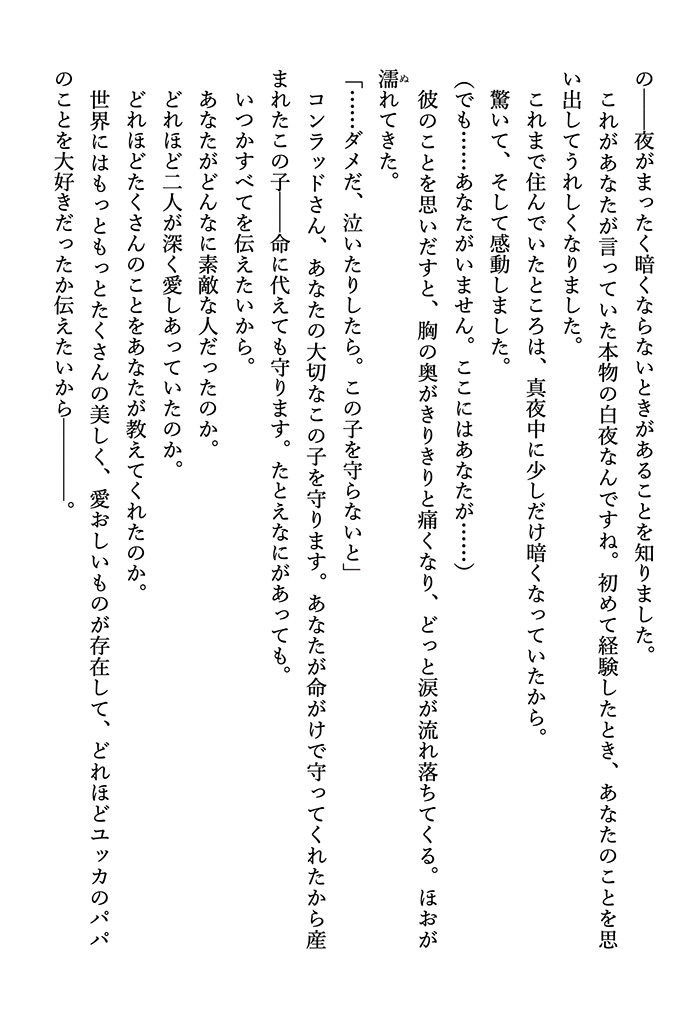 の――夜がまったく暗くならないときがあることを知りました。
これがあなたが言っていた本物の白夜なんですね。初めて経験したとき、あなたのことを思
い出してうれしくなりました。
これまで住んでいたところは、真夜中に少しだけ暗くなっていたから。
驚いて、そして感動しました。
(でも……あなたがいません。ここにはあなたが……)
彼のことを思いだすと、胸の奥がきりきりと痛くなり、どっと涙が流れ落ちてくる。ほおが
濡ぬれてきた。
「……ダメだ、泣いたりしたら。この子を守らないと」
コンラッドさん、あなたの大切なこの子を守ります。あなたが命がけで守ってくれたから産
まれたこの子――命に代えても守ります。たとえなにがあっても。
いつかすべてを伝えたいから。
あなたがどんなに素敵な人だったのか。
どれほど二人が深く愛しあっていたのか。
どれほどたくさんのことをあなたが教えてくれたのか。
世界にはもっともっとたくさんの美しく、愛おしいものが存在して、どれほどユッカのパパ
のことを大好きだったか伝えたいから――――。